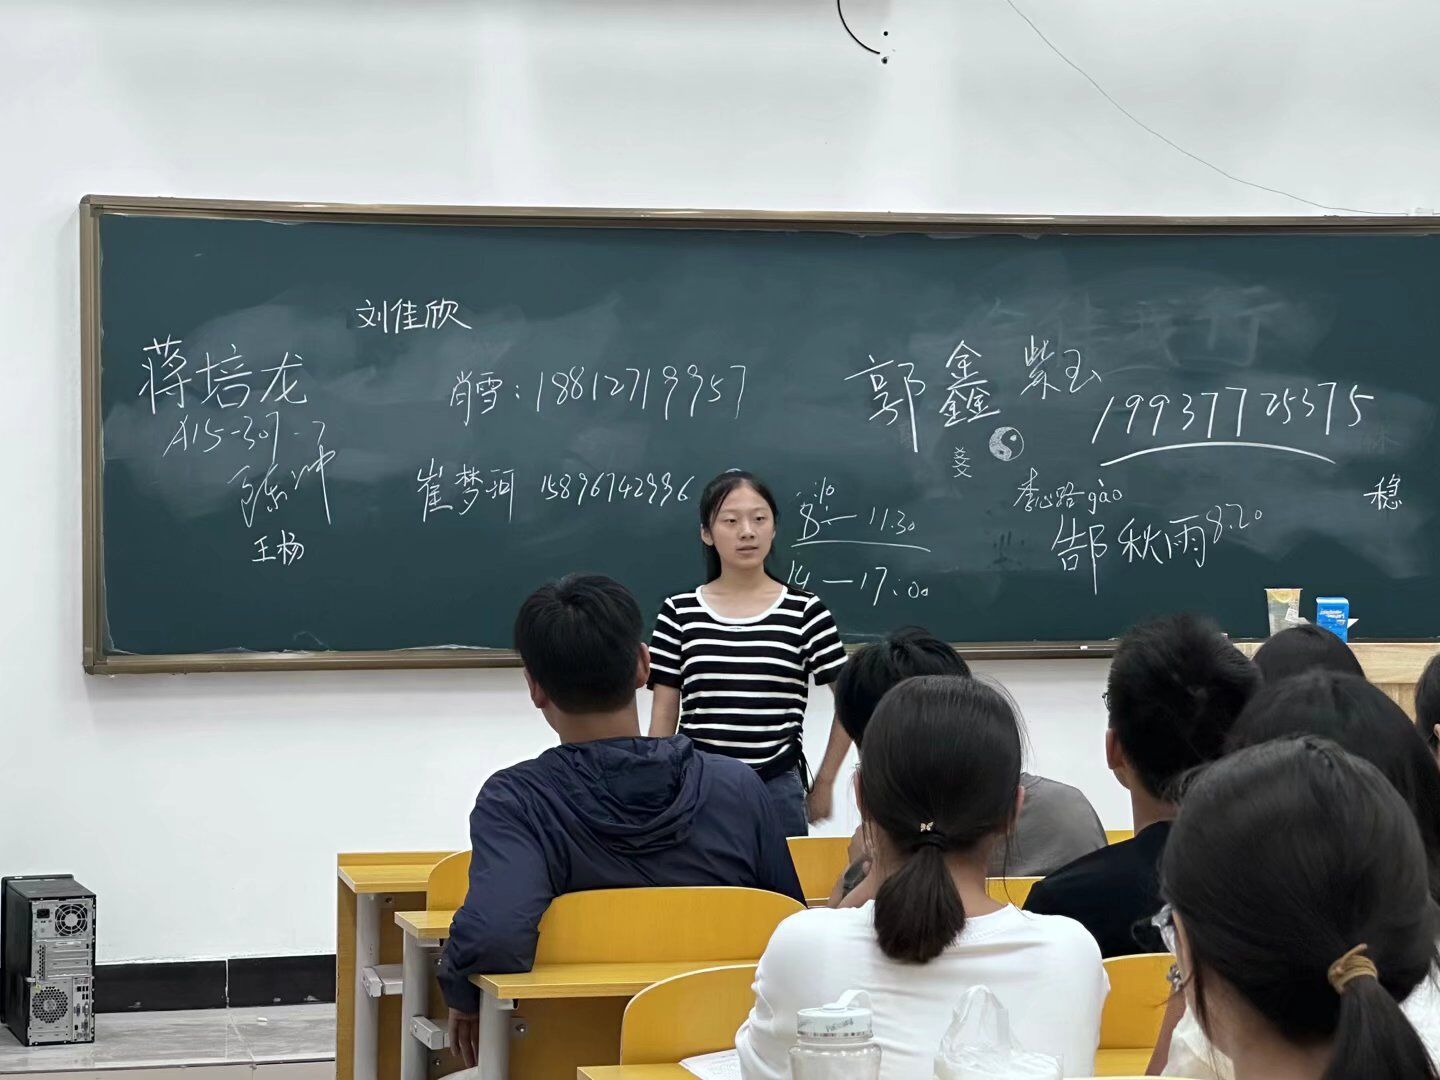 刘佳欣
蒋培龙
A15-307-7
陈冲
王杨
肖雪：18812719957
崔梦珂 15896742996
8:10—11:30
14—17:00
郭鑫
紫玉
19937725375
李心路 gào
郜秋雨 8.20
稳